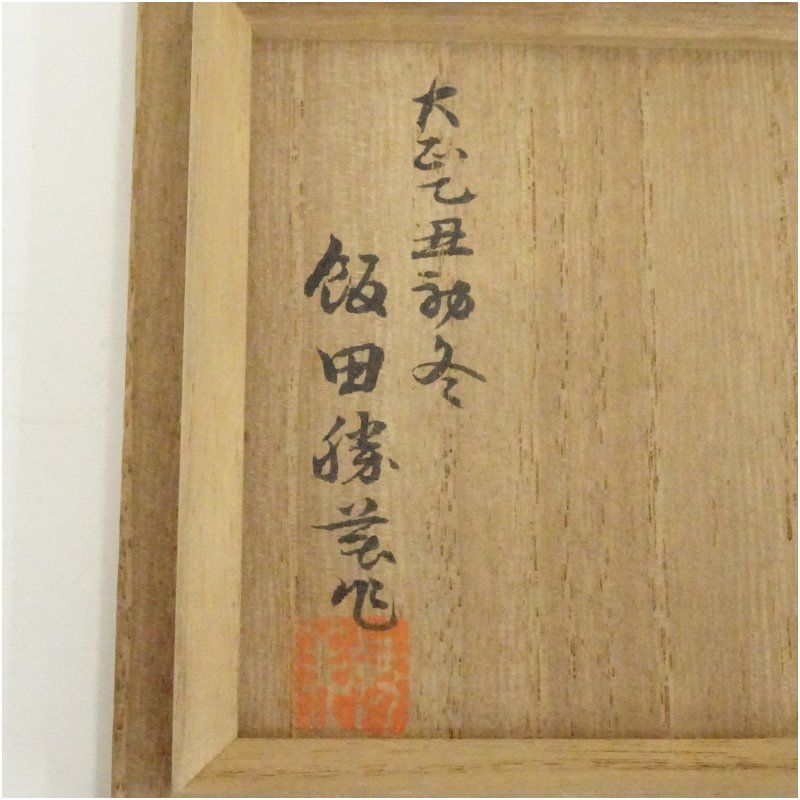 大正乙丑初冬
飯田勝英作